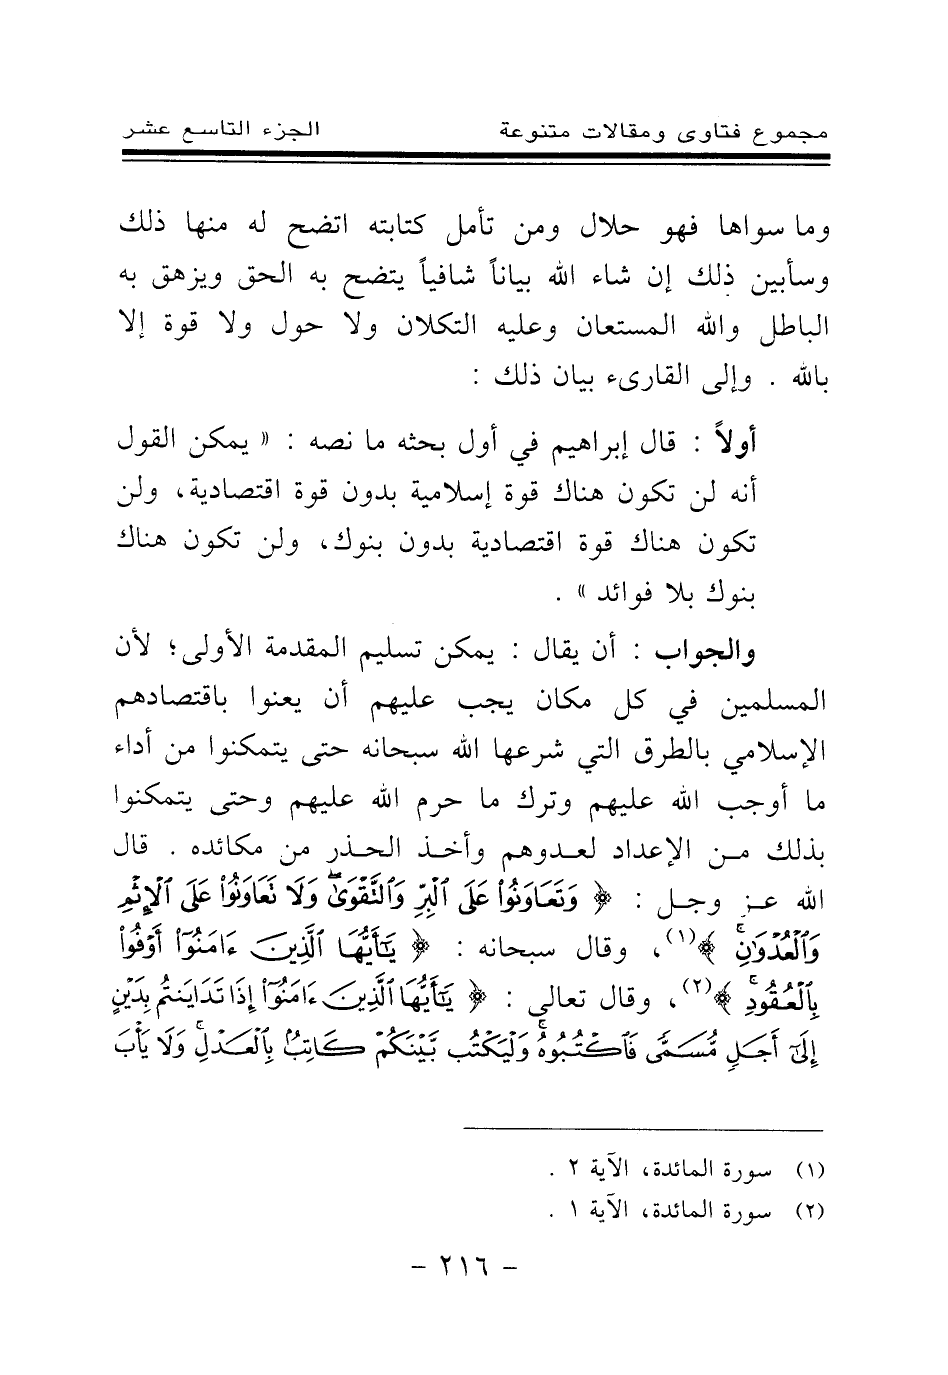 مجموع فتاوى ومقالات متنوعة الجزء التاسع عشر
وما سواها فهو حلال ومن تأمل كتابته اتضح له منها ذلك
وسأبين ذلك إن شاء الله بياناً شافياً يتضح به الحق ويزهق به
الباطل والله المستعان وعليه التكلان ولا حول ولا قوة إلا
بالله . وإلى القارىء بيان ذلك :
أولاً : قال إبراهيم في أول بحثه ما نصه : « يمكن القول
أنه لن تكون هناك قوة إسلامية بدون قوة اقتصادية، ولن
تكون هناك قوة اقتصادية بدون بنوك، ولن تكون هناك
بنوك بلا فوائد » .
والجواب : أن يقال : يمكن تسليم المقدمة الأولى؛ لأن
المسلمين في كل مكان يجب عليهم أن يعنوا باقتصادهم
الإسلامي بالطرق التي شرعها الله سبحانه حتى يتمكنوا من أداء
ما أوجب الله عليهم وترك ما حرم الله عليهم وحتى يتمكنوا
بذلك من الإعداد لعدوهم وأخذ الحذر من مكائده . قال
الله عز وجل : ﴿ وَتَعَاوَنُوا۟ عَلَى ٱلْبِرِّ وَٱلتَّقْوَىٰ ۖ وَلَا تَعَاوَنُوا۟ عَلَى ٱلْإِثْمِ
وَٱلْعُدْوَٰنِ ۚ ﴾(١)، وقال سبحانه : ﴿ يَـٰٓأَيُّهَا ٱلَّذِينَ ءَامَنُوٓا۟ أَوْفُوا۟
بِٱلْعُقُودِ ۚ ﴾(٢)، وقال تعالى : ﴿ يَـٰٓأَيُّهَا ٱلَّذِينَ ءَامَنُوٓا۟ إِذَا تَدَايَنتُم بِدَيْنٍ
إِلَىٰٓ أَجَلٍ مُّسَمًّى فَٱكْتُبُوهُ ۚ وَلْيَكْتُب بَّيْنَكُمْ كَاتِبٌۢ بِٱلْعَدْلِ ۚ وَلَا يَأْبَ
(١) سورة المائدة، الآية ٢ .
(٢) سورة المائدة، الآية ١ .
- ٢١٦ -